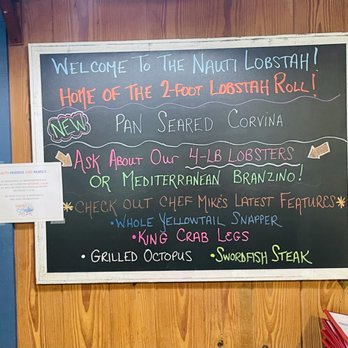 Welcome To The Nauti Lobstah!
Home of the 2-Foot Lobstah Roll!
NEW
Pan Seared Corvina
Ask About Our 4-LB Lobsters
or Mediterranean Branzino!
*Check out Chef Mike's Latest Features*
• Whole Yellowtail Snapper
• King Crab Legs
• Grilled Octopus • Swordfish Steak